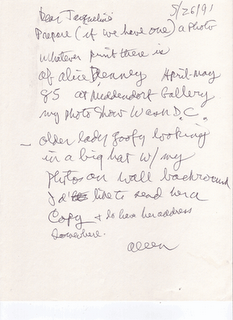 Dear Jacqueline 5/26/91
Prepare (if we have one) a photo
whatever print there is
of Alice Denney April-May
85 at Middendorf Gallery
my photo show Wash D.C.
- older lady goofy looking
in a big hat w/ my
photos on wall backround
I'd like to send her a
Copy + to have her address
somewhere.
Allen